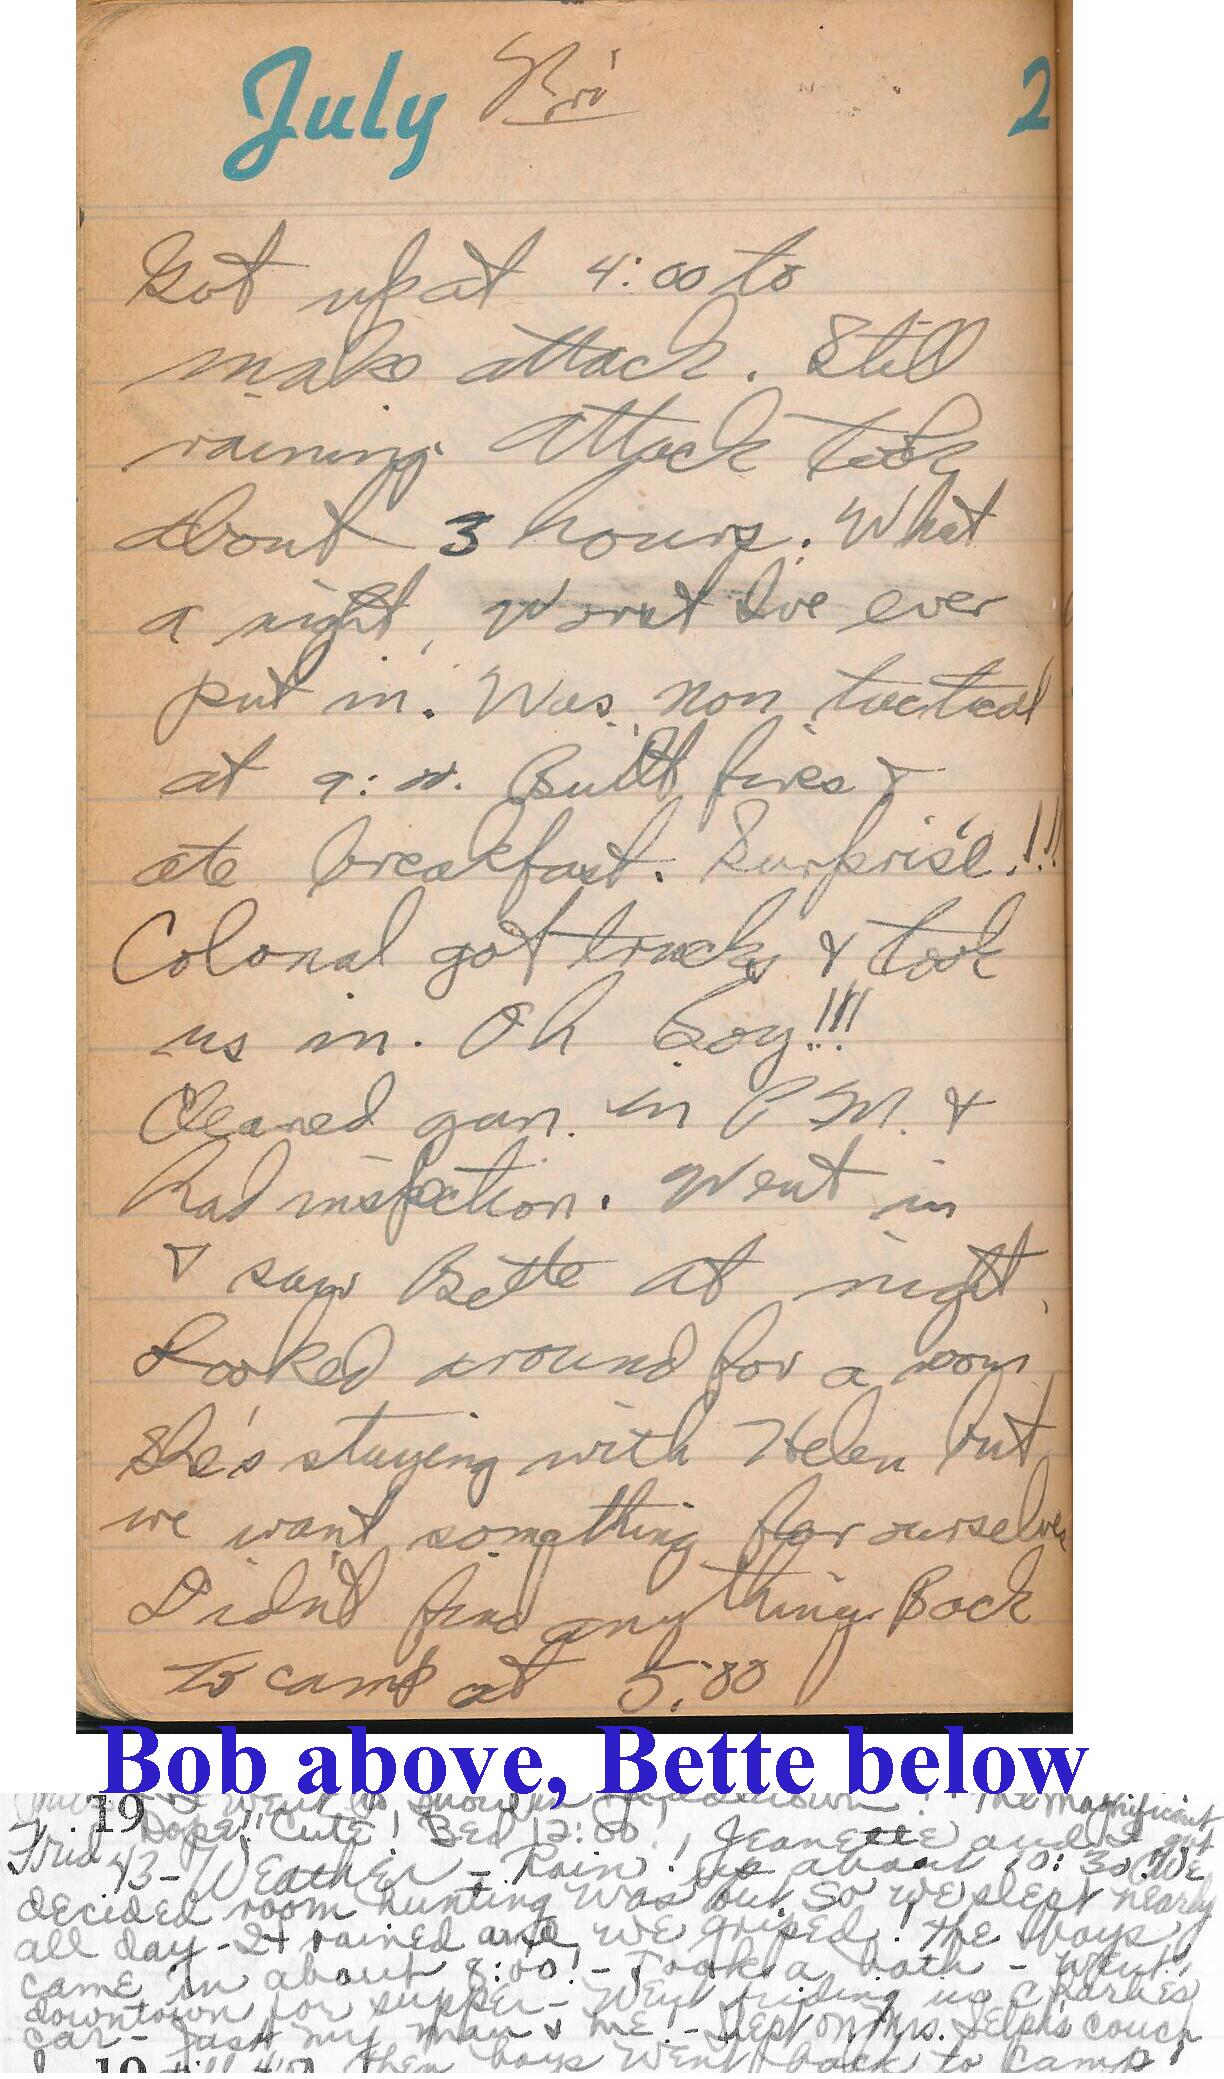 July Fri 2
Got up at 4:00 to
make attack. Still
raining. Attack took
about 3 hours. What
a night, Worst I've ever
put in. Was non tactical
at 9:00. Built fires &
ate breakfast. Surprise!!!
Colonal got trucks & took
us in. Oh boy!!!
Cleaned gun in P.M. &
had inspection. Went in
& saw Bette at night.
Looked around for a room
She's staying with Helen but
we want something for ourselves
Didn't find anything. Back
to camp at 5:00
Bob above, Bette below
went to show in downtown! "The Magnificent
19 Dope" Cute! Bed 12:00! Jeanette and I got
Frid 43 - Weather - Rain! up about 10:30. We
decided room hunting was out so we slept nearly
all day - It rained and we griped! The boys
came in about 8:00! - Took a bath - Went
downtown for supper - Went riding in Charlie's
car - Just my man & me - Slept on Mrs. couch
19 till then boys went back to camp!